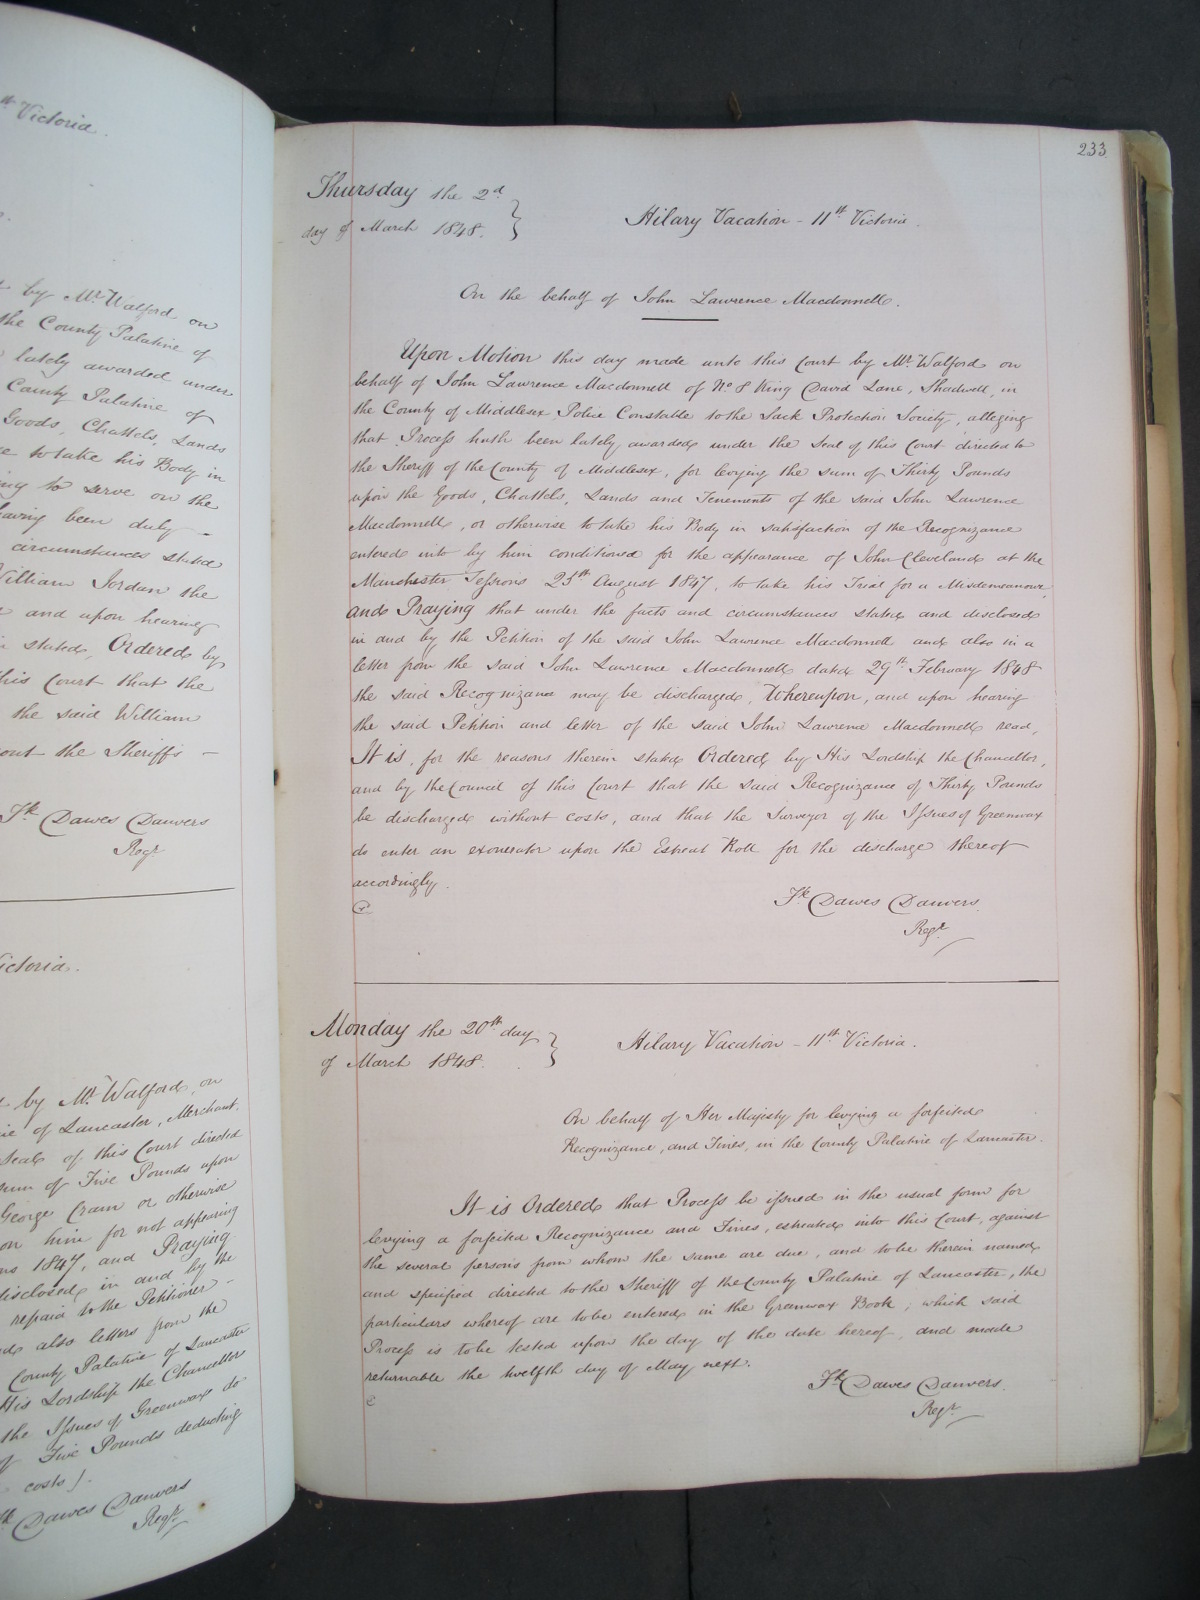 th Victoria.
by Mr. Walford on
the County Palatine of
lately awarded under
County Palatine of
Goods, Chattels, Lands
to take his Body in
ing to serve on the
having been duly –
circumstances stated
William Jordan the
and upon hearing
stated, Ordered by
this Court that the
the said William
out the Sheriff's –
Fk. Dawes Danvers
Regr.
Victoria.
by Mr. Walford, on
of Lancaster, Merchant,
Seal of this Court directed
sum of Five Pounds upon
George Cram or otherwise
on him for not appearing
1847, and Praying
disclosed in and by the
repaid to the Petitioner –
also letters from the
County Palatine of Lancaster
His Lordship the Chancellor
the Issues of Greenwax do
of Five Pounds deducting
costs).
Fk Dawes Danvers
Regr.
233
Thursday the 2d
day of March 1848. }
Hilary Vacation – 11th Victoria.
On the behalf of John Lawrence Macdonnell.
Upon Motion this day made unto this Court by Mr. Walford on
behalf of John Lawrence Macdonnell of No. 8 King David Lane, Shadwell, in
the County of Middlesex, Police Constable to the Sack Protection Society, alleging
that Process hath been lately awarded under the Seal of this Court directed to
the Sheriff of the County of Middlesex, for levying the sum of Thirty Pounds
upon the Goods, Chattels, Lands and Tenements of the said John Lawrence
Macdonnell, or otherwise to take his Body in satisfaction of the Recognizance
entered into by him conditioned for the appearance of John Cleveland at the
Manchester Sessions 23th August 1847, to take his Trial for a Misdemeanour,
and Praying that under the facts and circumstances stated and disclosed
in and by the Petition of the said John Lawrence Macdonnell and also in a
letter from the said John Lawrence Macdonnell dated 29th February 1848
the said Recognizance may be discharged, Whereupon, and upon hearing
the said Petition and letter of the said John Lawrence Macdonnell read,
It is, for the reasons therein stated Ordered by His Lordship the Chancellor,
and by the Council of this Court that the said Recognizance of Thirty Pounds
be discharged without costs, and that the Surveyor of the Issues of Greenwax
do enter an exonerator upon the Estreat Roll for the discharge thereof
accordingly.
Fk Dawes Danvers
Regr.
Monday the 20th day
of March 1848. }
Hilary Vacation – 11th Victoria.
On behalf of Her Majesty for levying a forfeited
Recognizance, and Fines, in the County Palatine of Lancaster.
It is Ordered that Process be issued in the usual form for
levying a forfeited Recognizance and Fines, estreated into this Court, against
the several persons from whom the same are due, and to be therein named
and specified directed to the Sheriff of the County Palatine of Lancaster, the
particulars whereof are to be entered in the Greenwax Book; which said
Process is to be tested upon the day of the date hereof, and made
returnable the twelfth day of May next.
Fk Dawes Danvers.
Regr.